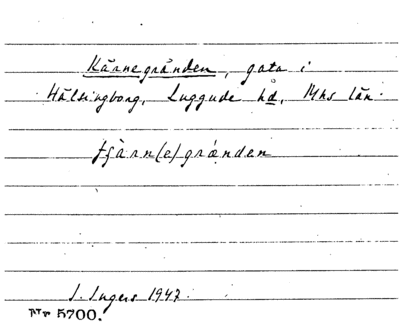 Kärnegränden, gata i
Hälsingborg, Luggude hd, Mhs län.
tʃä̀rn(e)grǽnden
I. Ingers 1947.
Nr 5700.